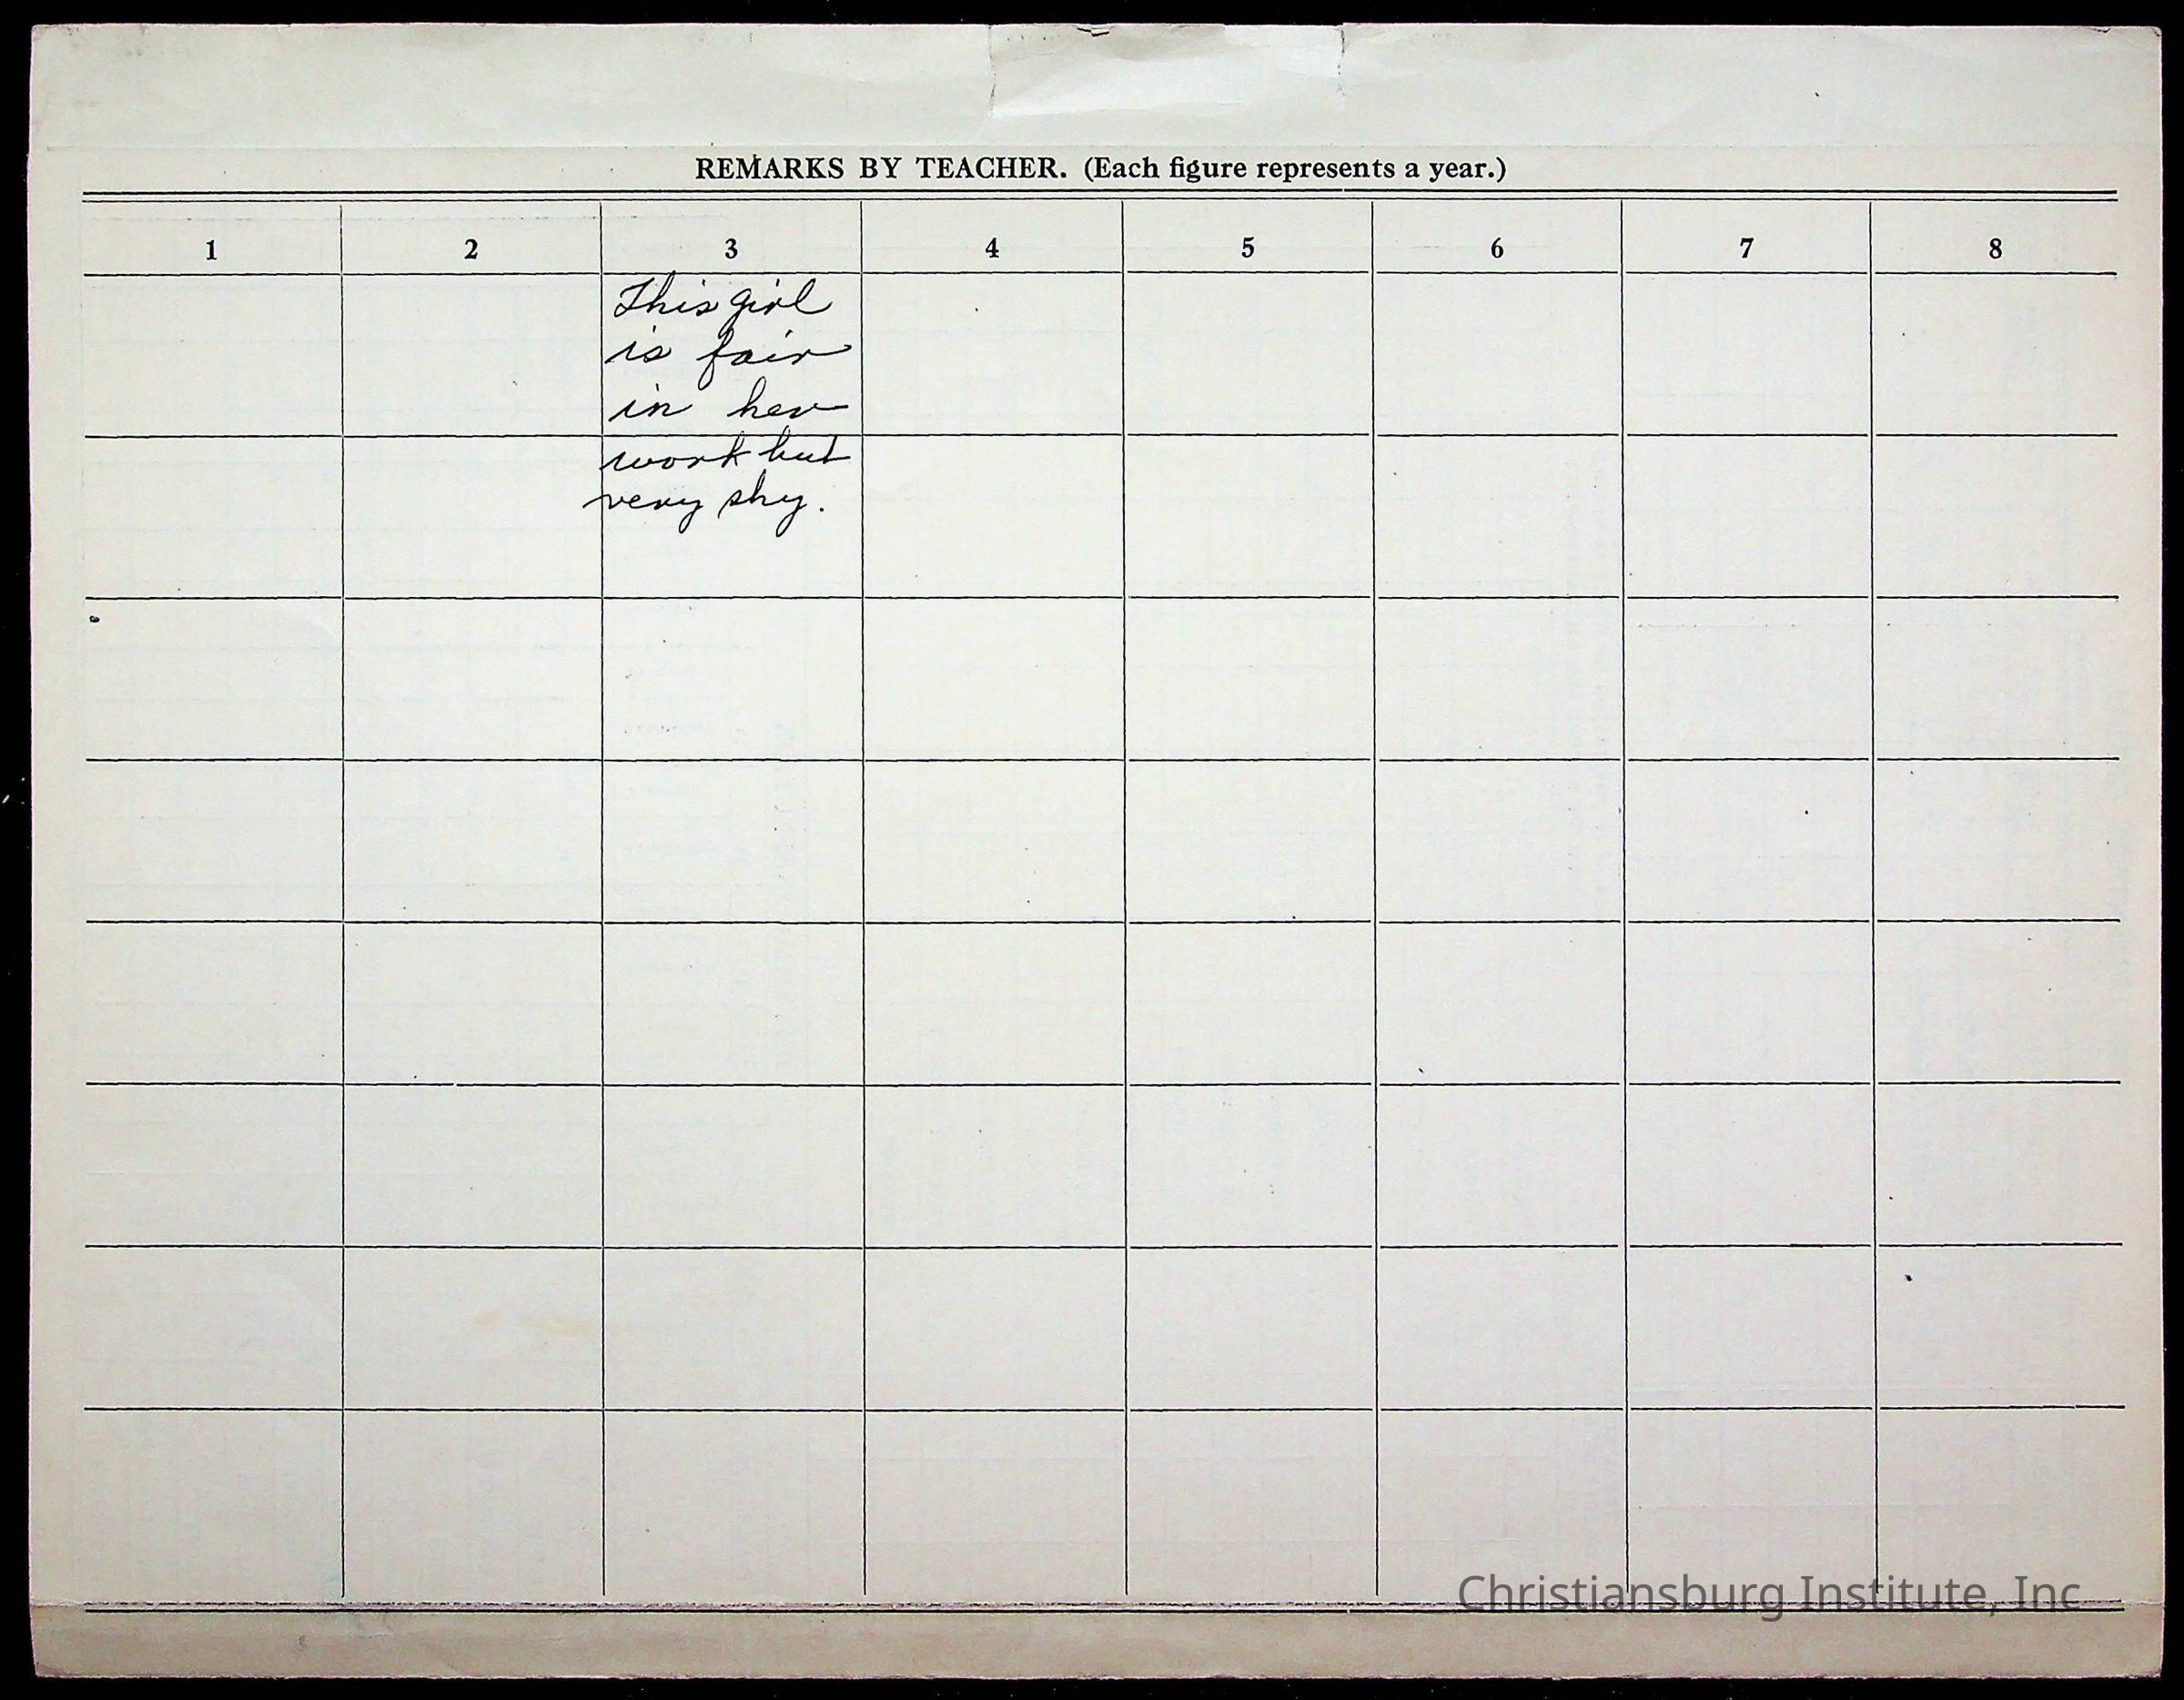 REMARKS BY TEACHER. (Each figure represents a year.)
1 2 3 4 5 6 7 8
This girl
is fair
in her
work but
very shy.
Christiansburg Institute, Inc